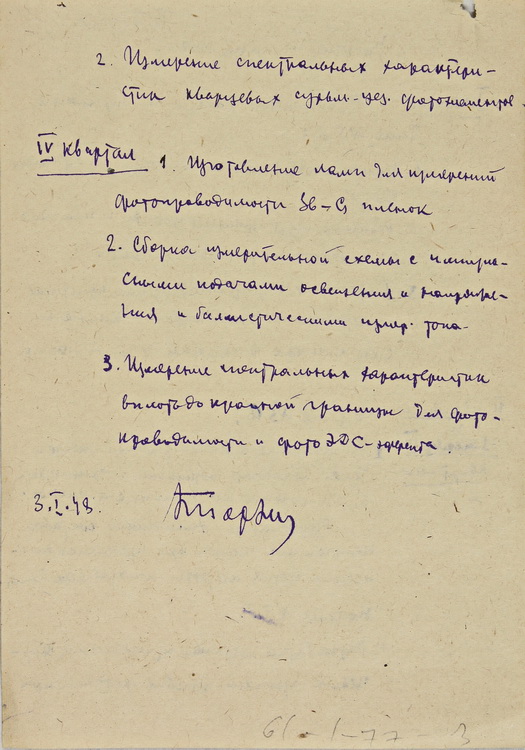 2. Измерение спектральных характери-
стик кварцевых сурьм.-цез. фотоэлементов.
IV квартал 1. Изготовление ламп для измерений
фотопроводимости Sb–Cs пленок
2. Сборка измерительной схемы с импульс-
ными подачами освещения и напряже-
ния и балистическими измер. тока
3. Измерение спектральных характеристик
вплоть до красной границы для фото-
проводимости и фото ЭДС-эффекта
3.I.48.
61-1-77-3